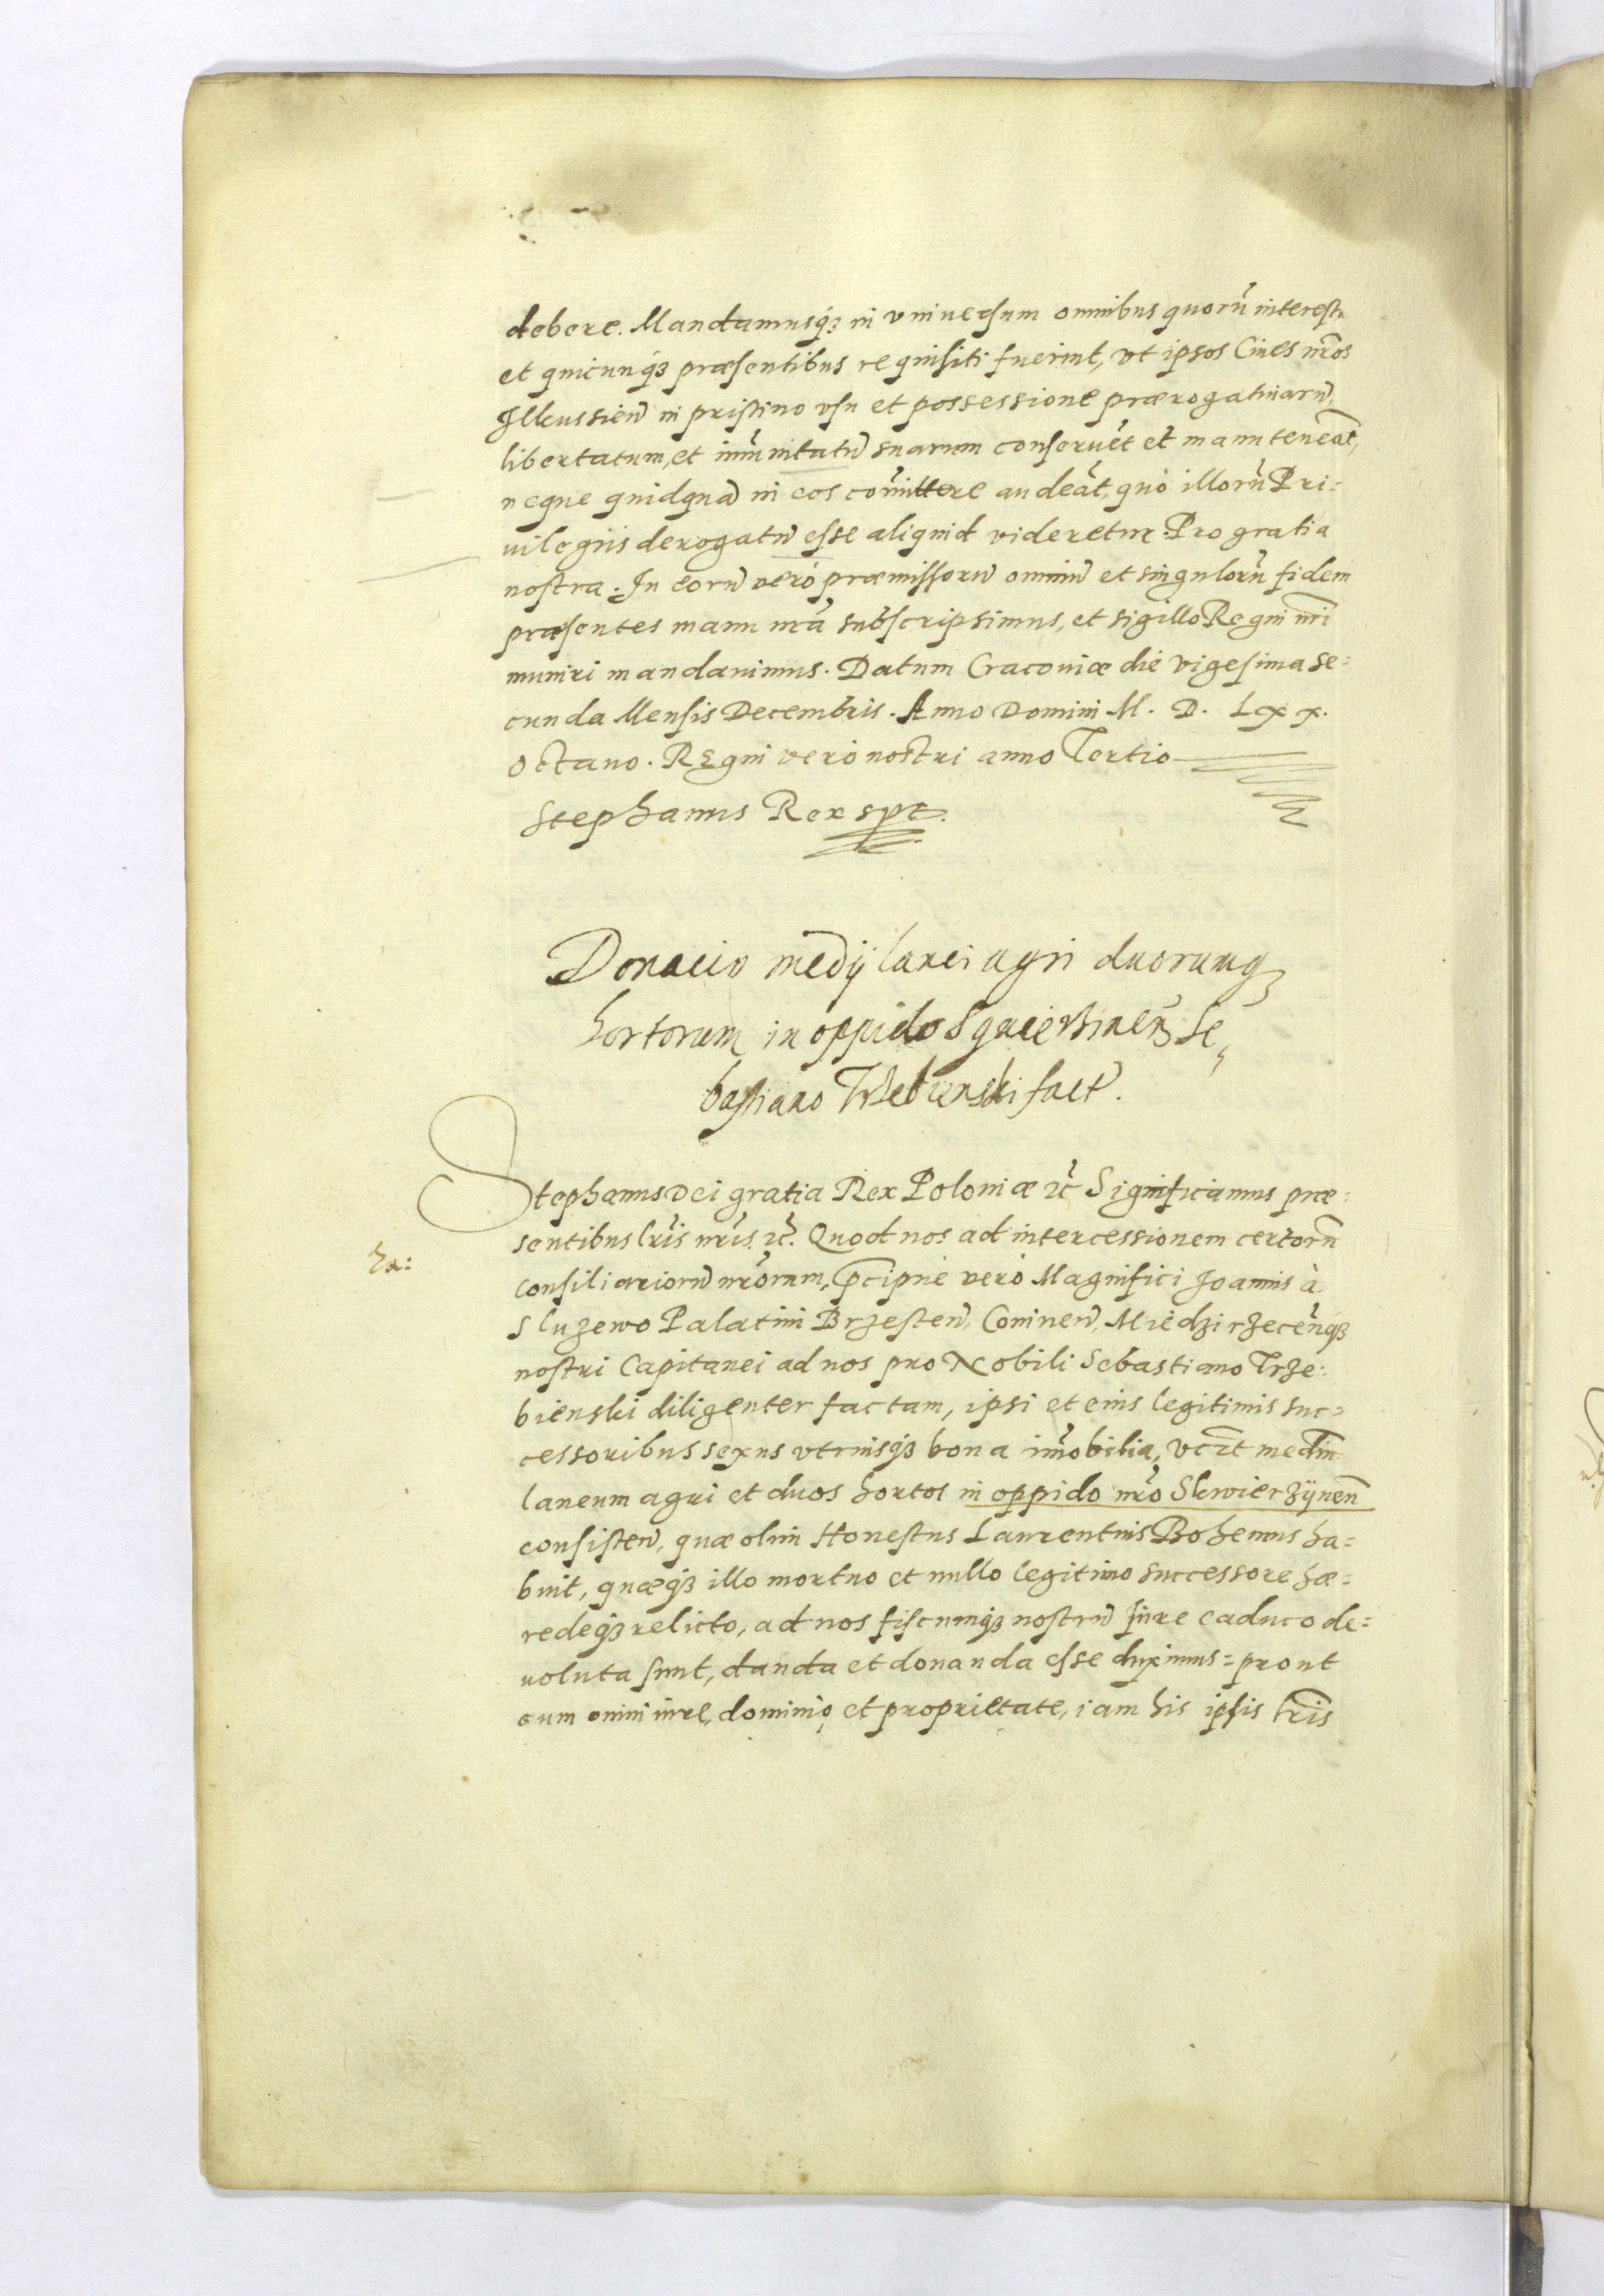 debere. Mandamusq̃ꝫ in vniuersum omnibus quorũ interest
et quicunq̃ꝫ præsentibus requisiti fuerint, vt ipsos Ciues nr̃os
Ilkussien̄ in pristino vsu et possessione prærogatiuarū,
libertatum, et im̃unitatū suarum conseruẽt et manu teneãt,
neque quidquā in eos com̃ittere audeãt, quò illorũ Pri=
uilegiis derogatū esse aliquid videretur. Pro gratia
nostra. In eorū verò præmissorū omniū et singulorũ fidem
præsentes manu nr̃a subscripsimus, et sigillo Regni nr̃i
muniri mandauimus. Datum Cracouiæ die vigesima se=
cunda Mensis Decembris. Anno Domini M. D. Lxx.
octauo. Regni verò nostri anno Tertio
Stephanus Rex spt.
Donacio medÿ lanei agri duorumqꝫ
hortorum in oppido Squierzinen̄ Se
bastiano Trzebienski fact̄.
Stephanus Dei gratia Rex Poloniæ ꝛc̃ Significamus præ=
sentibus lr̃is nr̃is ꝛc̃. Quod nos ad intercessionem certorũ
ha:
consiliariorū nr̃orum, p̄cipue verò Magnifici Joannis à
Sluzewo Palatini Brzesten̄, Coninen̄, Miedzirzecen̄q̃ꝫ
nostri Capitanei ad nos pro Nobili Sebastiano Trze=
bienski diligenter factam, ipsi et eius legitimis suc=
cessoribus sexus vtriusq̃ꝫ bona im̃obilia, vtꝛ̄t mediū
laneum agri et duos hortos in oppido nr̃o Skwierzÿnen̄
consisten̄, quæ olim Honestus Laurentius Bohemus ha=
buit, quæq̃ꝫ illo mortuo et nullo legitimo successore hæ=
redeq̃ꝫ relicto, ad nos fiscumq̃ꝫ nostrū iure caduco de=
uoluta sunt, danda et donanda esse duximus = prout
cum omni iure, dominio et proprietate, iam his ipsis lr̄is